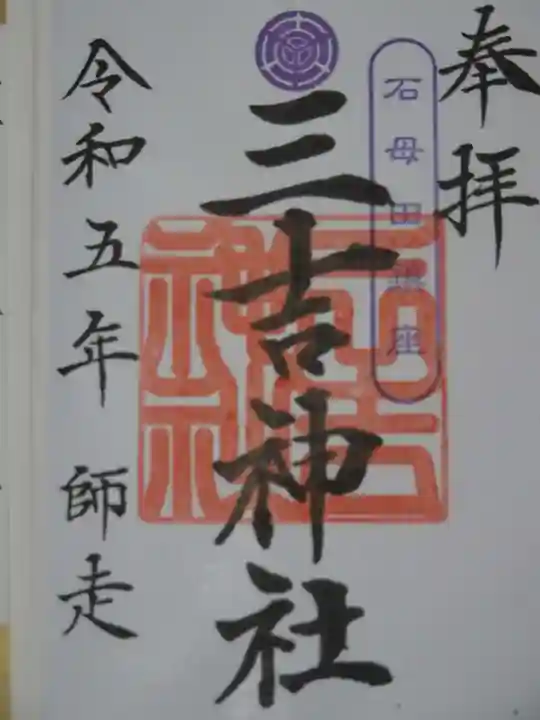 奉拝
石母田鎮座
三吉神社
三吉神社
令和五年 師走